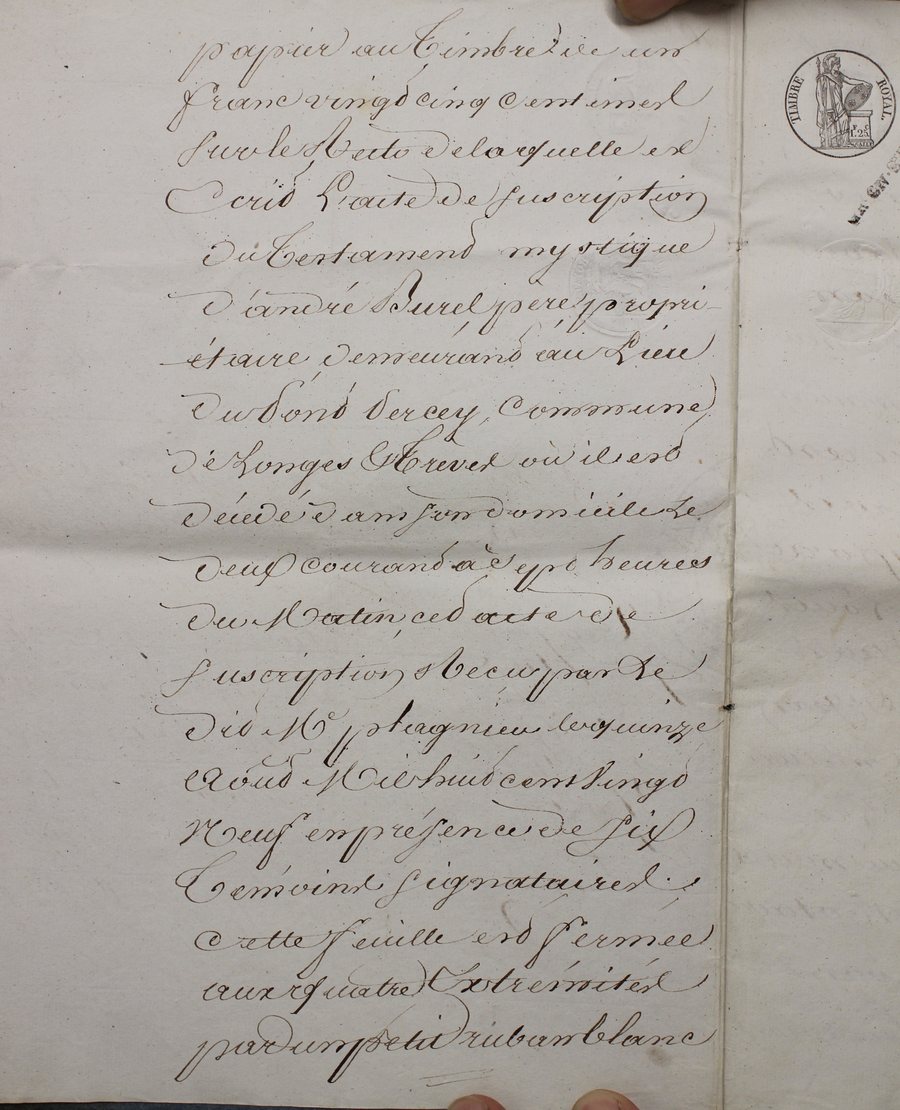 papier au Timbre de un
franc vingt cinq centimes
sur le Recto de laquelle est
Ecrit L'acte de suscription
du Testament mystique
d'andré Burel père, propri-
étaire, demeurant au Lieu
du fond Vercey, commune
de Longes & Treves où il est
décédé dans son domicile Le
deux courant à sept heures
du Matin, cet acte de
suscription Recu par Le
dit Me plagnieu le quinze
Aout Mil huit cent Vingt
Neuf en présence de six
Temoins signataires.
cette feuille est fermée
aux quatre Extrémités
par un petit ruban blanc
TIMBRE ROYAL
1.25